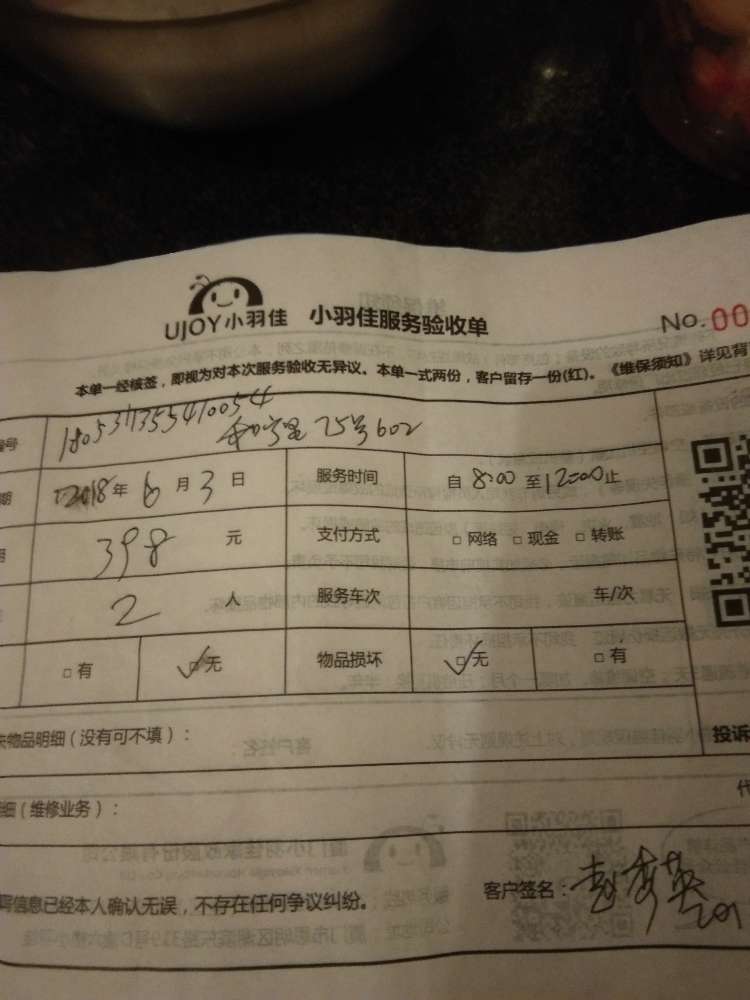 UJOY小羽佳 小羽佳服务验收单
No.00
本单一经核签，即视为对本次服务验收无异议。本单一式两份，客户留存一份(红)。《维保须知》详见背
编号
25号602
期 2018年 6月 3日 服务时间 自 8:00 至 12:00止
398 元 支付方式 □网络 □现金 □转账
2 人 服务车次 车/次
□有 □无 物品损坏 □无 □有
物品明细（没有可不填）：
投诉
细（维修业务）：
代
写信息已经本人确认无误，不存在任何争议纠纷。
客户签名：